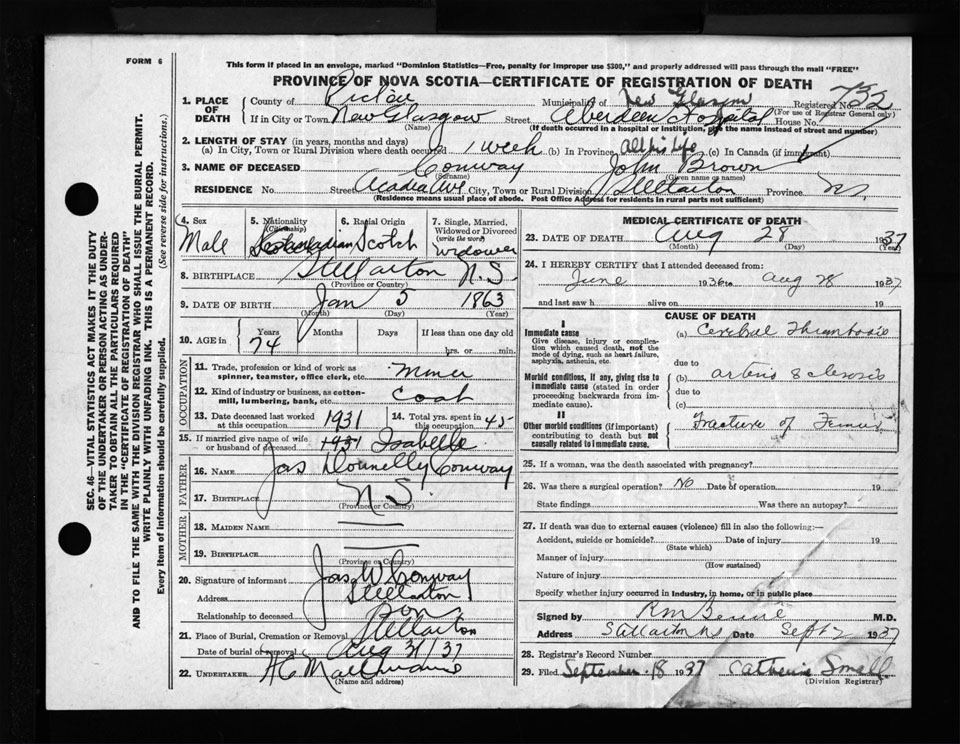 FORM 6
This form if placed in an envelope, marked "Dominion Statistics—Free, penalty for improper use $300," and properly addressed will pass through the mail "FREE"
PROVINCE OF NOVA SCOTIA—CERTIFICATE OF REGISTRATION OF DEATH
1. PLACE OF DEATH
County of Pictou Municipality of New Glasgow Registered No. 732
(For use of Registrar General only)
If in City or Town New Glasgow Street Aberdeen Hospital House No.
(Name) (If death occurred in a hospital or institution, give the name instead of street and number)
2. LENGTH OF STAY (in years, months and days)
(a) In City, Town or Rural Division where death occurred 1 week (b) In Province All his life (c) In Canada (if immigrant)
3. NAME OF DECEASED Conway John Brown
(Surname) (Given name or names)
RESIDENCE No. Street Acadia Ave City, Town or Rural Division Stellarton Province N.S.
(Residence means usual place of abode. Post Office Address for residents in rural parts not sufficient)
4. Sex Male
5. Nationality (Citizenship) Canadian
6. Racial Origin Scotch
7. Single, Married, Widowed or Divorced (write the word) Widower
8. BIRTHPLACE Stellarton N.S.
(Province or Country)
9. DATE OF BIRTH Jan 5 1863
(Month) (Day) (Year)
10. AGE in Years 74 Months Days If less than one day old
hrs. or min.
OCCUPATION
11. Trade, profession or kind of work as spinner, teamster, office clerk, etc. Miner
12. Kind of industry or business, as cotton-mill, lumbering, bank, etc. Coal
13. Date deceased last worked at this occupation 1931
14. Total yrs. spent in this occupation 45
15. If married give name of wife or husband of deceased 1931 Isabelle
FATHER
16. NAME Jas Donnelly Conway
17. BIRTHPLACE N.S.
(Province or Country)
MOTHER
18. MAIDEN NAME
19. BIRTHPLACE
(Province or Country)
20. Signature of informant Jas W Conway
Address Stellarton
Relationship to deceased Son
21. Place of Burial, Cremation or Removal Stellarton
Date of burial or removal Aug 31/37
22. UNDERTAKER
(Name and address)
MEDICAL CERTIFICATE OF DEATH
23. DATE OF DEATH Aug 28 1937
(Month) (Day) (Year)
24. I HEREBY CERTIFY that I attended deceased from
June 1936 to Aug 28 1937
and last saw h alive on 19
CAUSE OF DEATH
I
Immediate cause
Give disease, injury or complication which caused death, not the mode of dying, such as heart failure, asphyxia, asthenia, etc.
(a) Cerebral Thrombosis
due to
Morbid conditions, if any, giving rise to immediate cause (stated in order proceeding backwards from immediate cause).
(b) arterio sclerosis
due to
(c)
II
Other morbid conditions (if important) contributing to death but not causally related to immediate cause.
Fracture of Femur
25. If a woman, was the death associated with pregnancy?
26. Was there a surgical operation? No Date of operation 19
State findings Was there an autopsy?
27. If death was due to external causes (violence) fill in also the following:—
Accident, suicide or homicide? Date of injury 19
(State which)
Manner of injury
(How sustained)
Nature of injury
Specify whether injury occurred in industry, in home, or in public place
Signed by M.D.
Address Stellarton NS Date Sept 2 1937
28. Registrar's Record Number
29. Filed September 18 1937 Catherine Small
(Division Registrar)
SEC. 46—VITAL STATISTICS ACT MAKES IT THE DUTY
OF THE UNDERTAKER OR PERSON ACTING AS UNDER-
TAKER TO OBTAIN ALL THE PARTICULARS REQUIRED
IN THE "CERTIFICATE OF REGISTRATION OF DEATH"
AND TO FILE THE SAME WITH THE DIVISION REGISTRAR WHO SHALL ISSUE THE BURIAL PERMIT.
WRITE PLAINLY WITH UNFADING INK. THIS IS A PERMANENT RECORD.
Every item of information should be carefully supplied.
(See reverse side for instructions.)